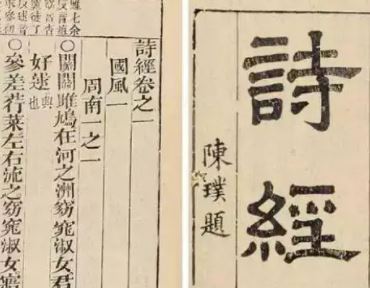 詩經
陳璞題
詩經卷之一
國風一
周南一之一
○關關雎鳩在河之洲窈窕淑女君
好逑興也
○參差荇菜左右流之窈窕淑女寤